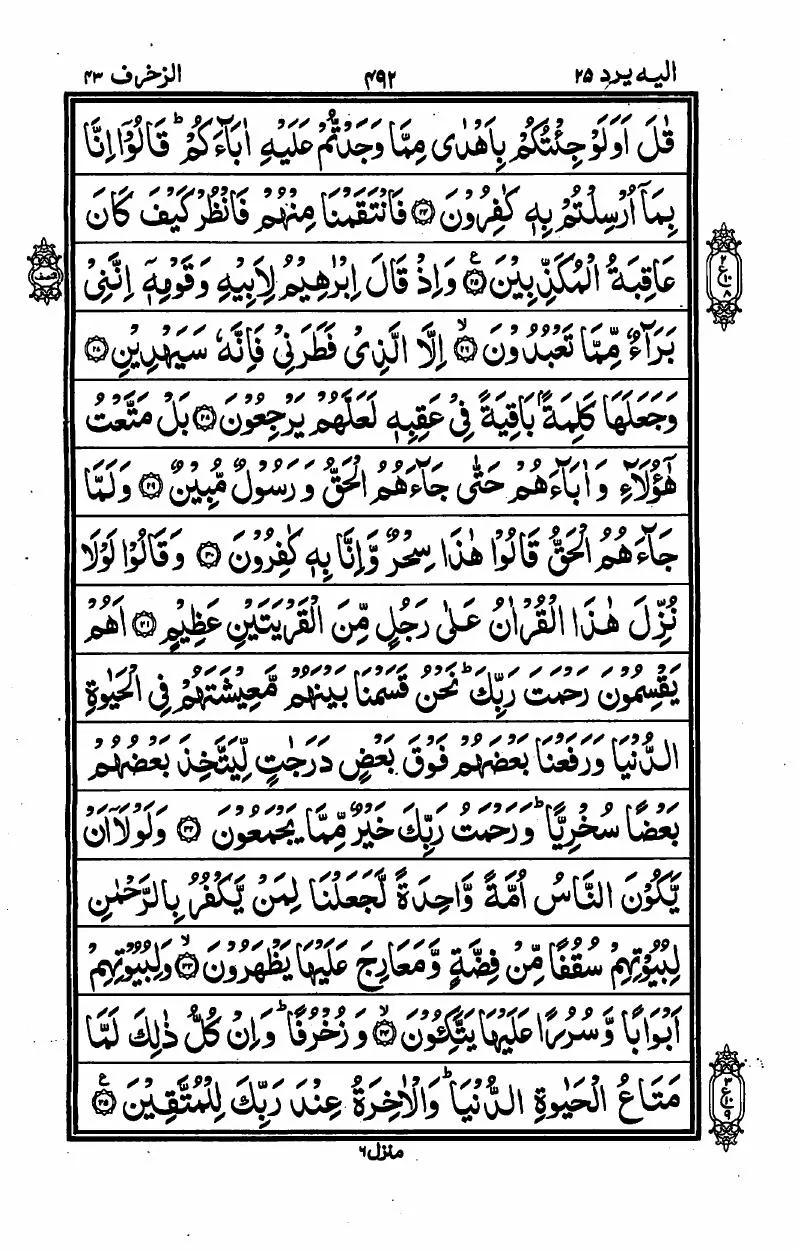 اليه يرد ٢٥
٤٩٢
الزخرف ٤٣
قٰلَ اَوَلَوْ جِئْتُكُمْ بِاَهْدٰى مِمَّا وَجَدْتُّمْ عَلَيْهِ اٰبَآءَكُمْ ؕ قَالُوْۤا اِنَّا
بِمَاۤ اُرْسِلْتُمْ بِهٖ كٰفِرُوْنَ ۝٢٤ فَانْتَقَمْنَا مِنْهُمْ فَانْظُرْ كَيْفَ كَانَ
عَاقِبَةُ الْمُكَذِّبِيْنَ ۝٢٥ ع وَاِذْ قَالَ اِبْرٰهِيْمُ لِاَبِيْهِ وَقَوْمِهٖۤ اِنَّنِىْ
بَرَآءٌ مِّمَّا تَعْبُدُوْنَ ۝٢٦ ۙ اِلَّا الَّذِىْ فَطَرَنِىْ فَاِنَّهٗ سَيَهْدِيْنِ ۝٢٧
وَجَعَلَهَا كَلِمَةًۢ بَاقِيَةً فِىْ عَقِبِهٖ لَعَلَّهُمْ يَرْجِعُوْنَ ۝٢٨ بَلْ مَتَّعْتُ
هٰٓؤُلَآءِ وَاٰبَآءَهُمْ حَتّٰى جَآءَهُمُ الْحَقُّ وَرَسُوْلٌ مُّبِيْنٌ ۝٢٩ وَلَمَّا
جَآءَهُمُ الْحَقُّ قَالُوْا هٰذَا سِحْرٌ وَّاِنَّا بِهٖ كٰفِرُوْنَ ۝٣٠ وَقَالُوْا لَوْلَا
نُزِّلَ هٰذَا الْقُرْاٰنُ عَلٰى رَجُلٍ مِّنَ الْقَرْيَتَيْنِ عَظِيْمٍ ۝٣١ اَهُمْ
يَقْسِمُوْنَ رَحْمَتَ رَبِّكَ ؕ نَحْنُ قَسَمْنَا بَيْنَهُمْ مَّعِيْشَتَهُمْ فِى الْحَيٰوةِ
الدُّنْيَا وَرَفَعْنَا بَعْضَهُمْ فَوْقَ بَعْضٍ دَرَجٰتٍ لِّيَتَّخِذَ بَعْضُهُمْ
بَعْضًا سُخْرِيًّا ؕ وَرَحْمَتُ رَبِّكَ خَيْرٌ مِّمَّا يَجْمَعُوْنَ ۝٣٢ وَلَوْلَاۤ اَنْ
يَّكُوْنَ النَّاسُ اُمَّةً وَّاحِدَةً لَّجَعَلْنَا لِمَنْ يَّكْفُرُ بِالرَّحْمٰنِ
لِبُيُوْتِهِمْ سُقُفًا مِّنْ فِضَّةٍ وَّمَعَارِجَ عَلَيْهَا يَظْهَرُوْنَ ۝٣٣ ۙ وَلِبُيُوْتِهِمْ
اَبْوَابًا وَّسُرُرًا عَلَيْهَا يَتَّكِـُٔوْنَ ۝٣٤ ۙ وَزُخْرُفًا ؕ وَاِنْ كُلُّ ذٰلِكَ لَمَّا
مَتَاعُ الْحَيٰوةِ الدُّنْيَا ؕ وَالْاٰخِرَةُ عِنْدَ رَبِّكَ لِلْمُتَّقِيْنَ ۝٣٥ ع
٢
ع
١٠
٨
النصف
٣
ع
١٠
٩
منزل ٦